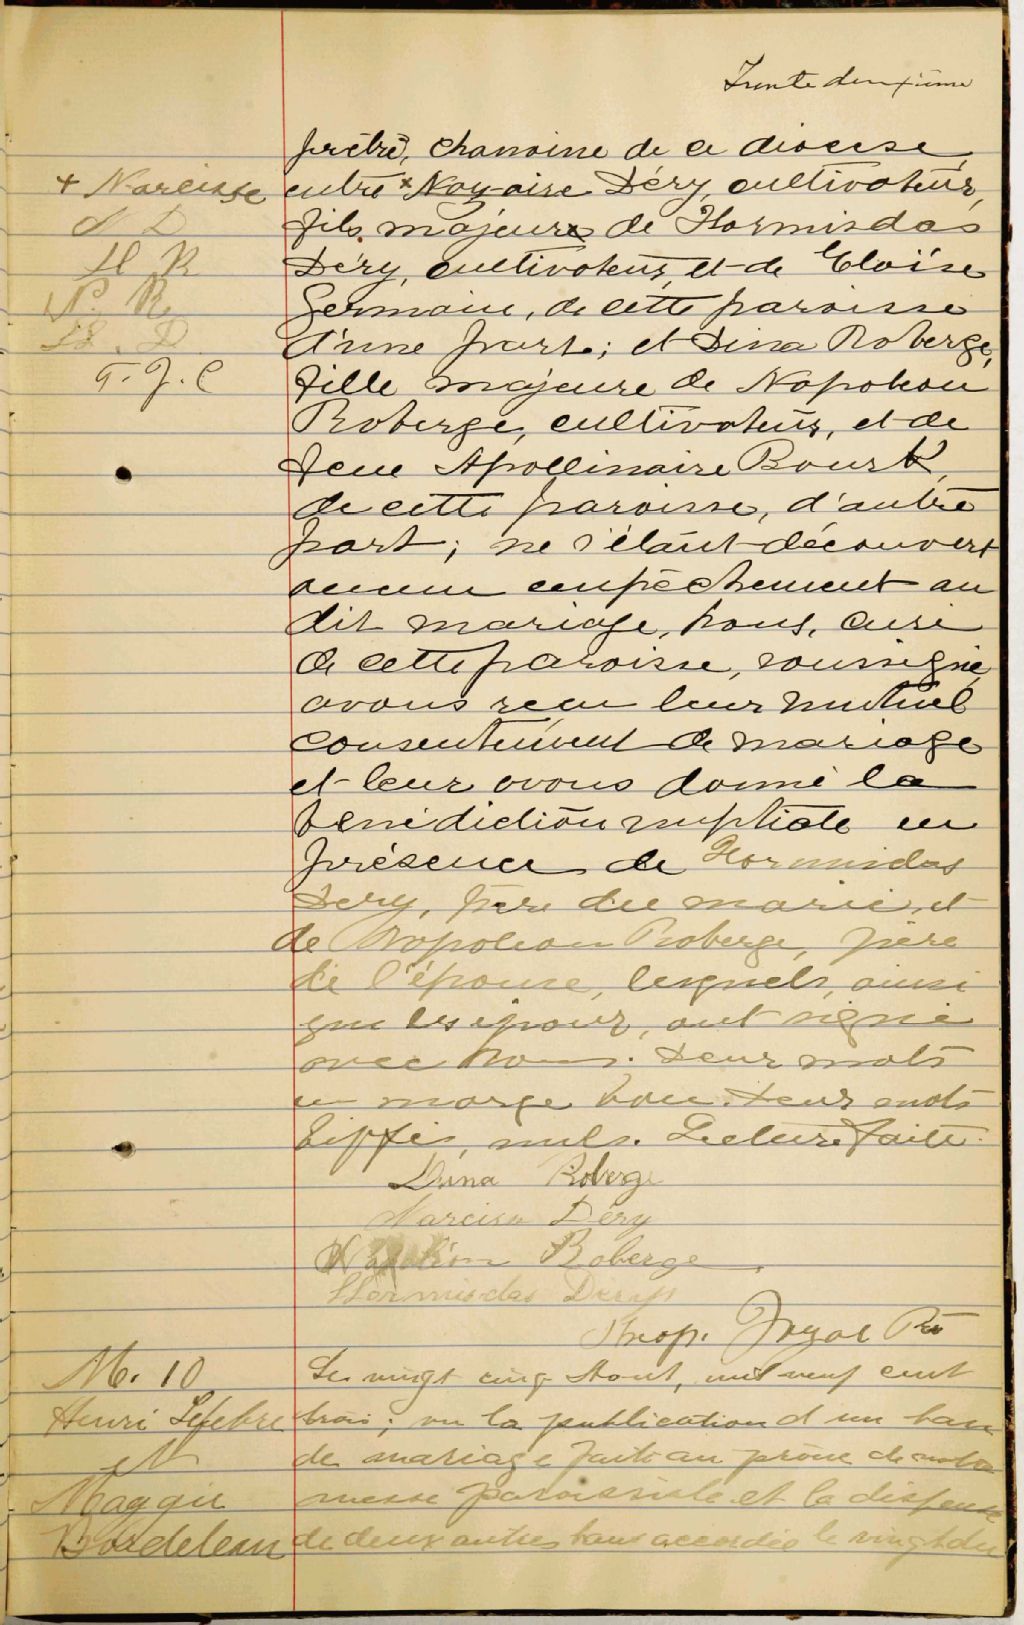 Trente deuxième
prêtre, chanoine de ce diocèse,
+ Narcisse
entre + Nazaire Déry, cultivateur,
N D
fils majeur de Hormisdas
H R
Déry, cultivateur, et de Eloïse
N. R.
Germain, de cette paroisse
H. D.
d'une part; et Dina Roberge,
T. J. C
fille majeure de Napoléon
Roberge, cultivateur, et de
feue Apollinaire Bourk,
de cette paroisse, d'autre
part; ne s'étant découvert
aucun empêchement au
dit mariage, Nous, curé
de cette paroisse, soussigné,
avons reçu leur mutuel
consentement de mariage
et leur avons donné la
bénédiction nuptiale en
présence de Hormisdas
Déry, père du marié, et
de Napoléon Roberge, père
de l'épouse, lesquels, ainsi
que les époux, ont signé
avec Nous. Deux mots
en marge bons. Deux mots
biffés, nuls. Lecture faite.
Dina Roberge
Narcisse Déry
Napoléon Roberge
Hormisdas Dery
Théop. Joyal Ptre
M. 10
Le vingt cinq Août, mil neuf cent
Henri Lefebvre
trois; vu la publication d'un ban
et
de mariage faite au prône de notre
Maggie
messe paroissiale et la dispense
Bordeleau
de deux autres bans accordée le vingt du